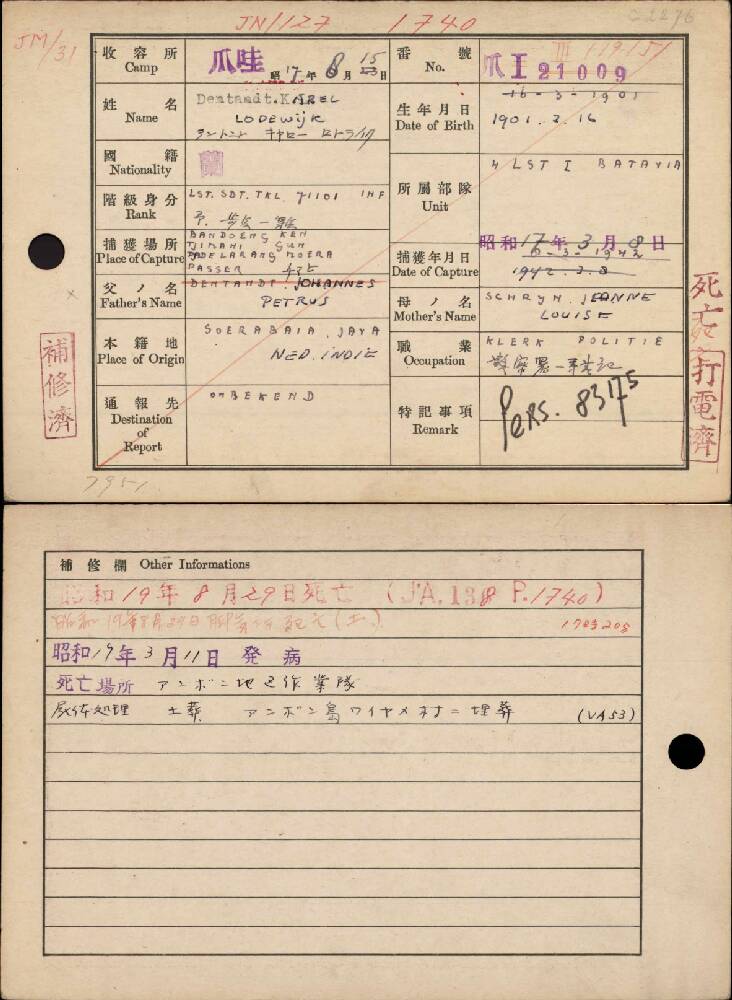 JN/127 1740
JM/31
收容所 Camp 爪哇 昭17年8月15日
番號 No. 爪I 21009
姓名 Name Dentandt.KAREL
LODEWIJK
生年月日 Date of Birth 16-3-1901
1901.3.16
國籍 Nationality 蘭
階級身分 Rank LST. SDT. TKL 71101 INF
所屬部隊 Unit 4 LST I BATAVIA
捕獲場所 Place of Capture BANDOENG KEN
TJIMAHI GUN
PADELARANG MOERA
PASSER
捕獲年月日 Date of Capture 昭和17年3月8日
8-3-1942
1942.3.8
父ノ名 Father's Name DENTANDT. JOHANNES
PETRUS
母ノ名 Mother's Name SCHRYN. JEANNE
LOUISE
本籍地 Place of Origin SOERABAIA. JAVA
NED. INDIE
職業 Occupation KLERK POLITIE
通報先 Destination of Report ONBEKEND
特記事項 Remark Pers. 83175
補修濟
打電濟
7951
補修欄 Other Informations
昭和19年8月29日死亡 (JA.138 P.1740)
昭和19年8月29日
昭和19年3月11日 発病
死亡場所 アンボン地区作業隊
屍体処理 土葬 アンボン島ワイヤメ村ニ埋葬 (VA53)